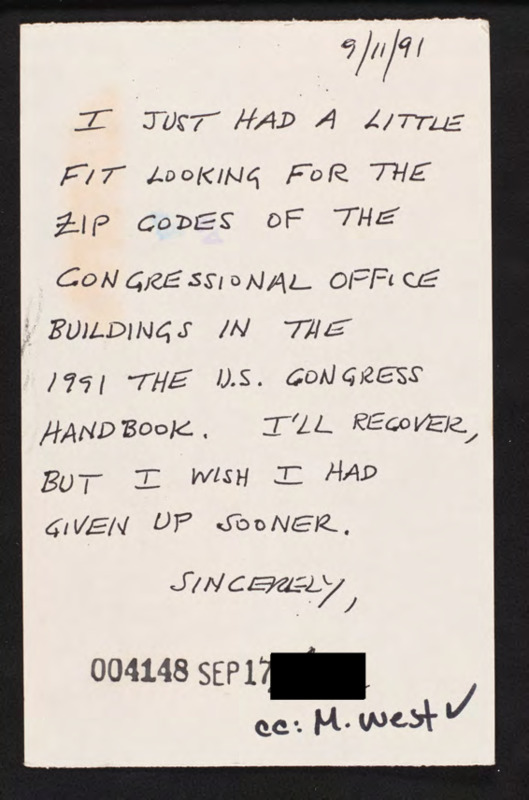 9/11/91
I JUST HAD A LITTLE
FIT LOOKING FOR THE
ZIP CODES OF THE
CONGRESSIONAL OFFICE
BUILDINGS IN THE
1991 THE U.S. CONGRESS
HANDBOOK. I'LL RECOVER,
BUT I WISH I HAD
GIVEN UP SOONER.
SINCERELY,
004148 SEP17
cc: M. West ✓